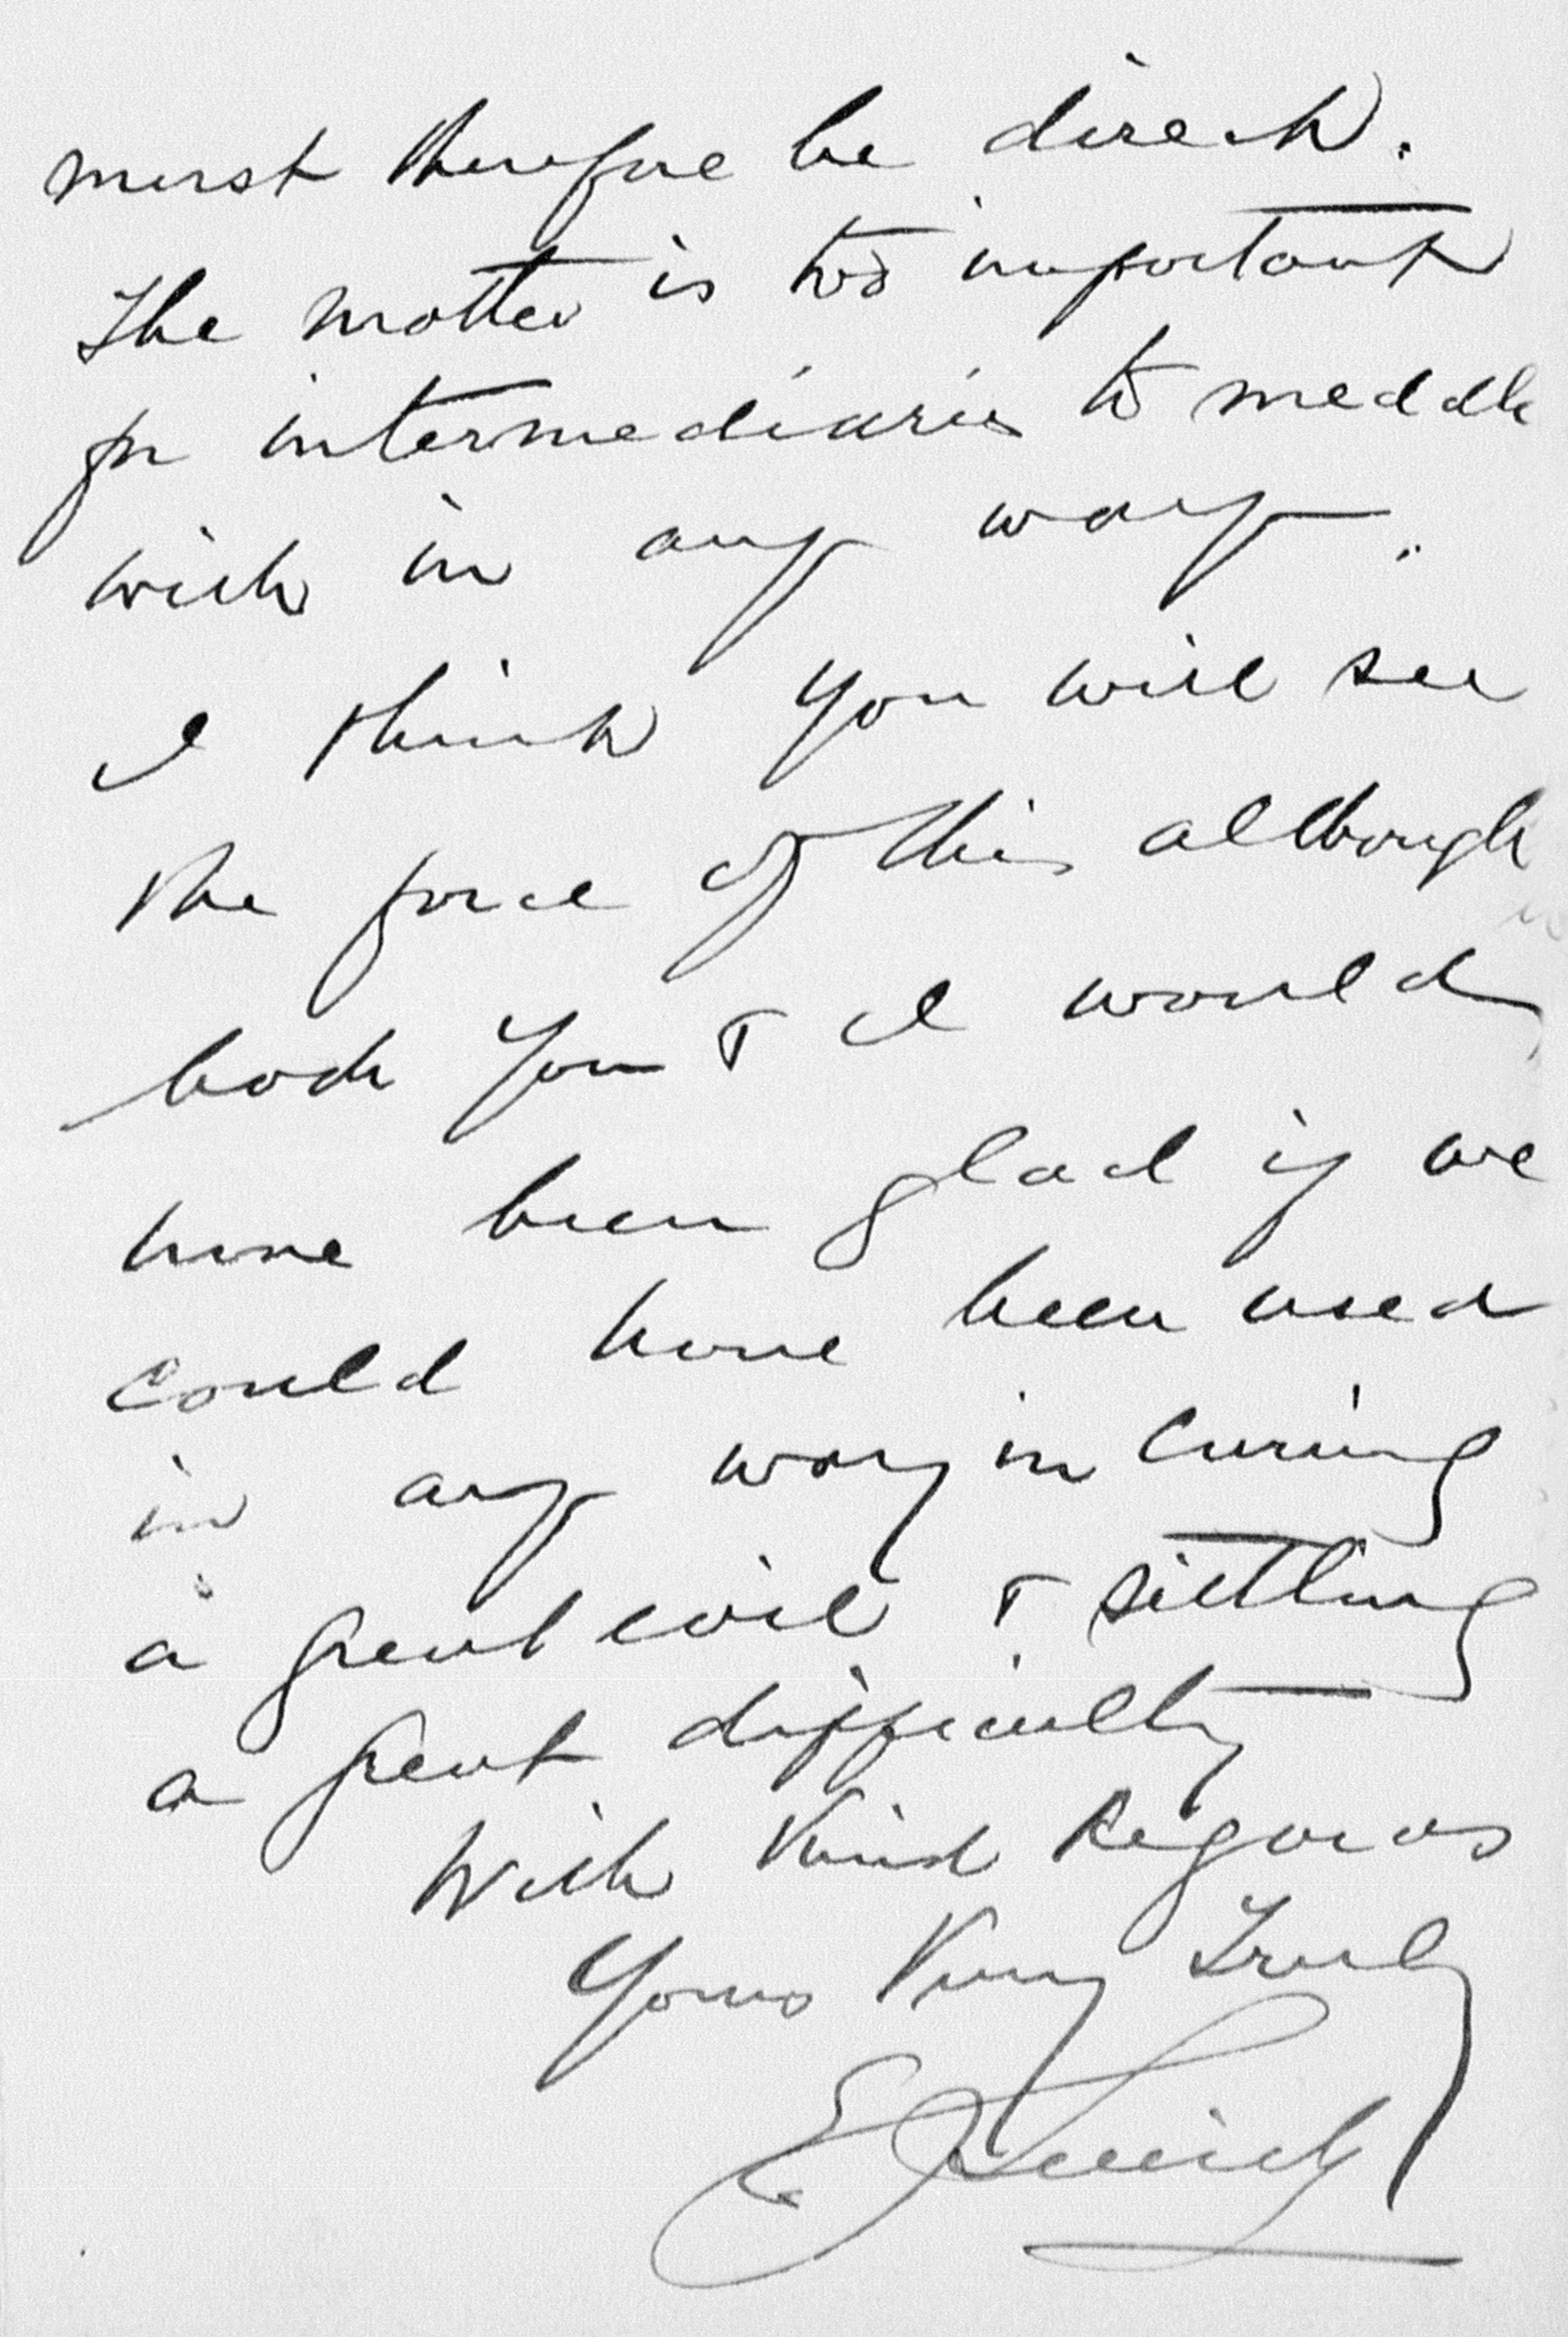 must therefore be direct.
The matter is too important
for intermediaries to meddle
with in any way.
I think you will see
the force of this although
both you & I would
have been glad if we
could have been used
in any way in curing
a great evil & settling
a great difficulty
With Kind Regards
Yours Very Truly
E